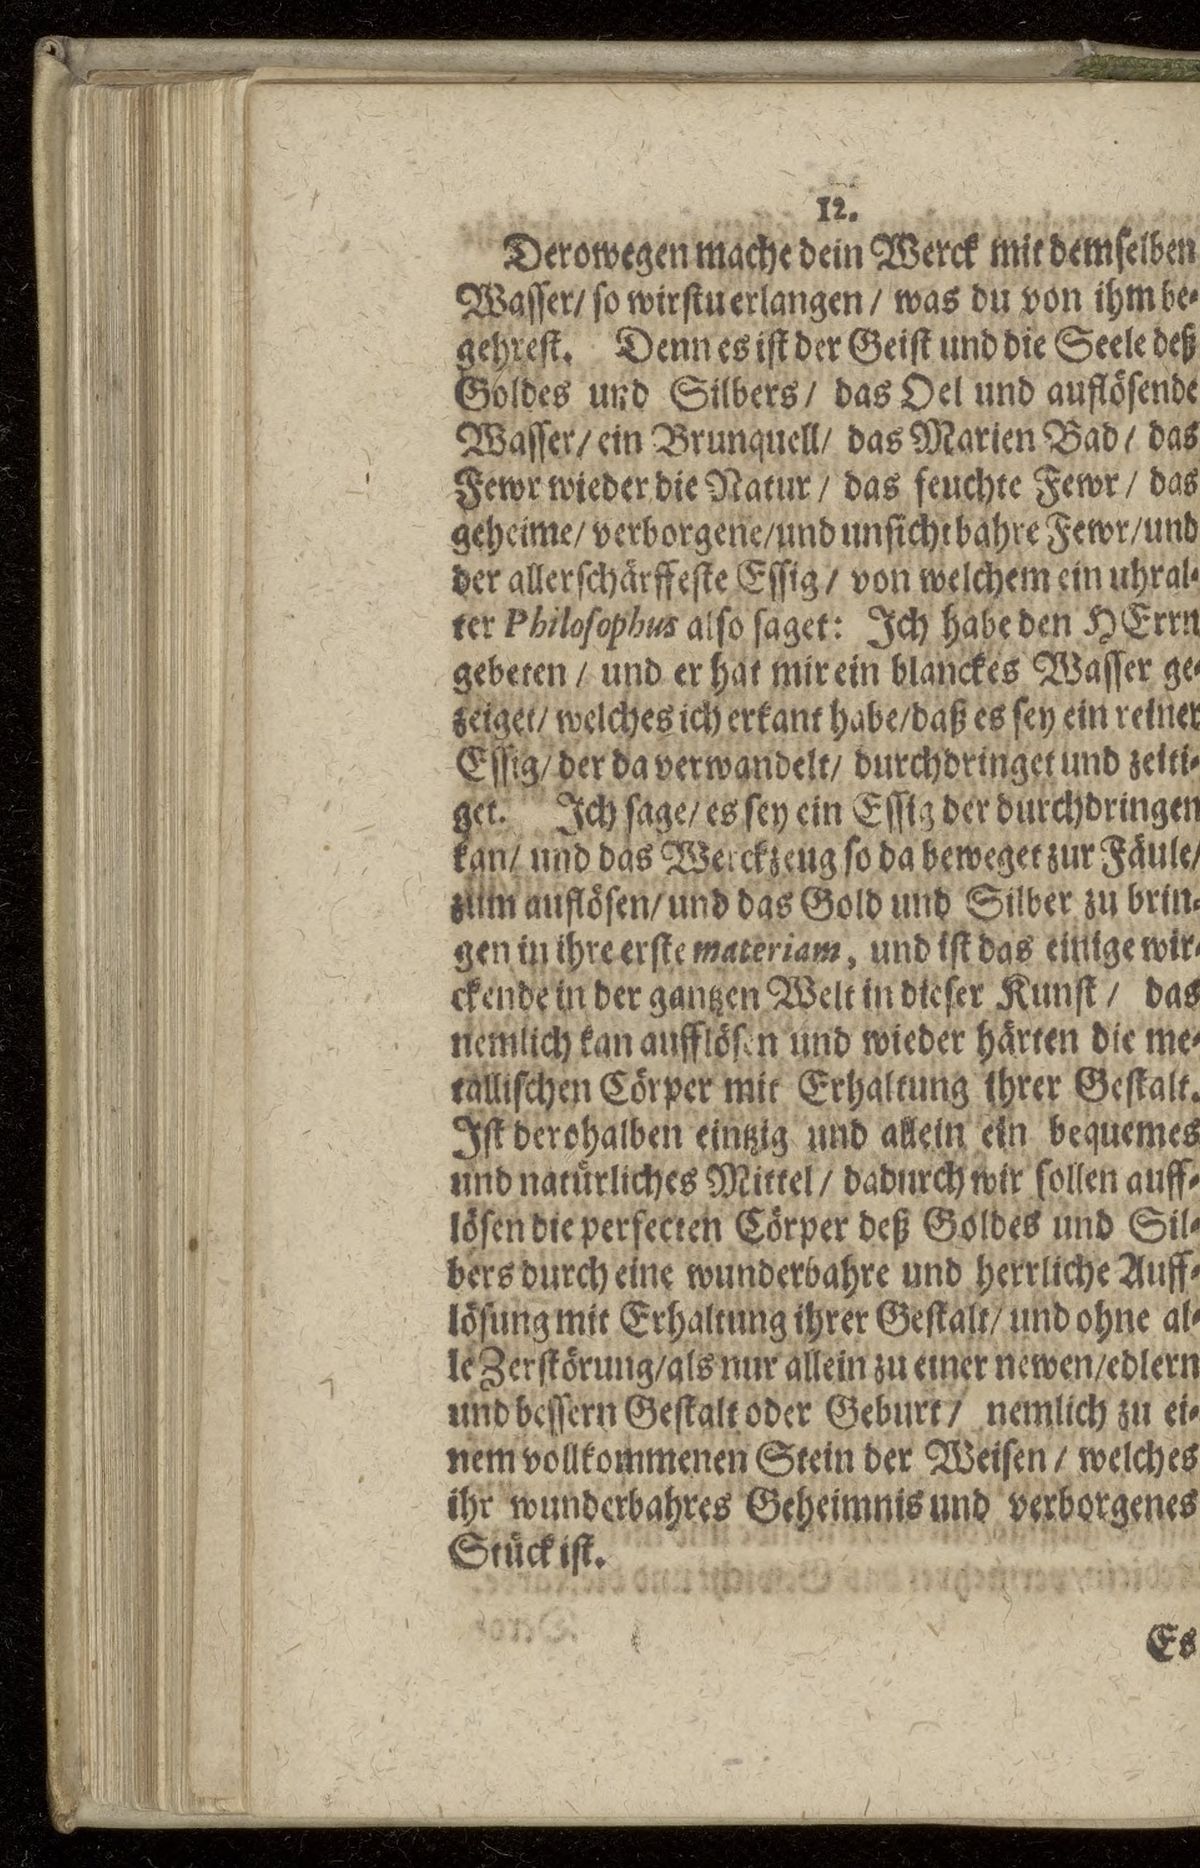 12.
Derowegen mache dein Werck mit demselben
Wasser/ so wirstu erlangen / was du von ihm be-
gehrest. Denn es ist der Geist und die Seele deß
Goldes und Silbers / das Oel und auflösende
Wasser/ ein Brunquell/ das Marien Bad / das
Fewr wieder die Natur / das feuchte Fewr / das
geheime/ verborgene/und unsichtbahre Fewr/und
der allerschärffeste Essig / von welchem ein uhral-
ter Philosophus also saget: Ich habe den HErrn
gebeten / und er hat mir ein blanckes Wasser ge-
zeiget/ welches ich erkant habe/daß es sey ein reiner
Essig/ der da verwandelt/ durchdringet und zeiti-
get. Ich sage/ es sey ein Essig der durchdringen
kan/ und das Werckzeug so da beweget zur Fäule/
zum auflösen/ und das Gold und Silber zu brin-
gen in ihre erste materiam, und ist das einige wir-
ckende in der gantzen Welt in dieser Kunst / das
nemlich kan aufflösen und wieder härten die me-
tallischen Cörper mit Erhaltung ihrer Gestalt.
Ist derohalben eintzig und allein ein bequemes
und natürliches Mittel / dadurch wir sollen auff-
lösen die perfecten Cörper deß Goldes und Sil-
bers durch eine wunderbahre und herrliche Auff-
lösung mit Erhaltung ihrer Gestalt/ und ohne al-
le Zerstörung/als nur allein zu einer newen/edlern
und bessern Gestalt oder Geburt / nemlich zu ei-
nem vollkommenen Stein der Weisen / welches
ihr wunderbahres Geheimnis und verborgenes
Stück ist.
Es